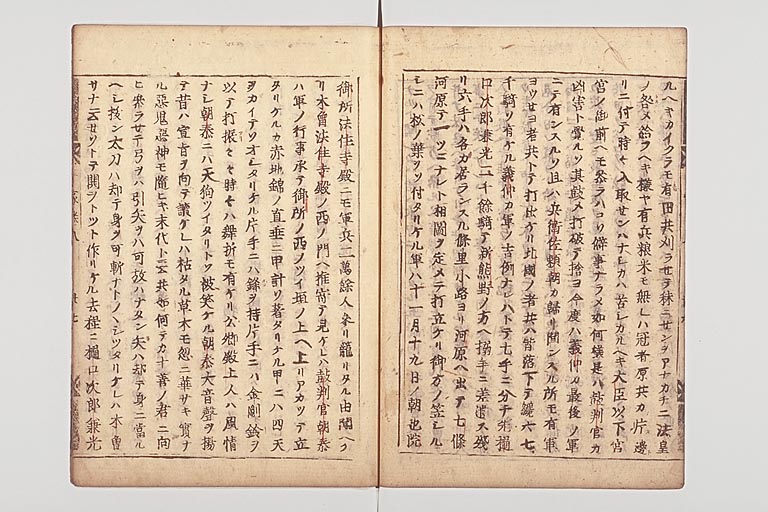 ルヘキカイクラモ有田共刈ラセテ秣ニサンヲアナカチニ法皇
ノ咎メ給フヘキ様ヤ有兵粮米モ無レハ冠者原共カ片邊
リニ付テ時々入取センハナシカハ苦シカルヘキ大臣以下宮
宮ノ御前ヘモ参ラハコソ僻事ナラメ如何様是ハ鼓判官カ
凶害ト覚ルソ其鼓メ打破テ捨ヨ今度ハ義仲カ最後ノ軍
ニテ有ンスルソ且ハ兵衛佐頼朝カ帰リ聞ンスル所モ有軍
ヨウセヨ者共トテ打出ケリ北國ノ者共ハ皆落下テ纔六七
千騎ソ有ケル義仲カ軍ノ吉例ナレハトテ七手ニ分テ樋
口次郎兼光二千餘騎テ新熊野ノ方ヘ搦手ニ差遣ス残
リ六手ハ各カ居ランスル條里小路ヨリ河原ヘ出テ七條
河原テ一ツニナレト相圖ヲ定メテ打立ケリ御方ノ笠シル
シニハ松ノ葉ヲソ付タリケル軍ハ十一月十九日ノ朝也院
御所法住寺殿ニモ軍兵二萬餘人参リ籠リタル由聞ヘケ
リ木曽法住寺殿ノ西ノ門ヘ推寄テ見ケレハ鼓判官朝泰
ハ軍ノ行事承テ御所ノ西ノツイ垣ノ上ヘ上リアカツテ立
タリケルカ赤地錦ノ直垂ニ甲計ソ著タリケル甲ニハ四天
ヲカイテソオシタリケル片手ニハ鉾ヲ持片手ニハ金剛鈴ヲ
以テ打振々々時々ハ舞折モ有ケリ公卿殿上人ハ風情
ナシ朝泰ニハ天狗ツイタリトソ被笑ケル朝泰大音聲ヲ揚
テ昔ハ宣旨ヲ向テ讀ケレハ枯タル草木モ忽ニ華サキ實ナ
ル悪鬼悪神モ随ヒキ末代ト云共如何テカ十善ノ君ニ向
ヒ参ラセテ弓ヲハ引矢ヲハ可放ハナタン矢ハ却テ身ニ當ル
ヘシ抜ン太刀ハ却テ身ヲ可斬ナトノヽシツタリケレハ木曽
サナ云セソトテ鬨ヲトツト作リケル去程ニ樋口次郎兼光